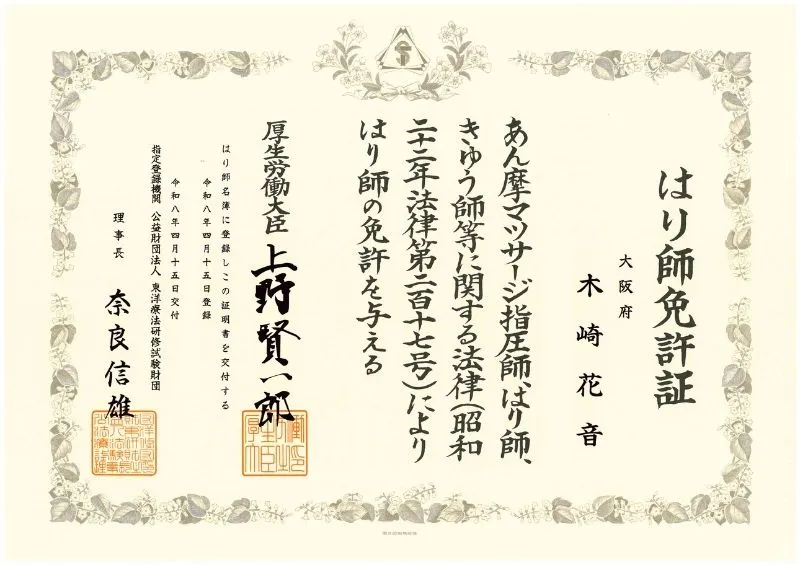 はり師免許証
大阪府
木崎花音
あん摩マツサージ指圧師、はり師、
きゆう師等に関する法律(昭和
二十二年法律第二百十七号)により
はり師の免許を与える
厚生労働大臣 上野賢一郎
はり師名簿に登録しこの証明書を交付する
令和八年四月十五日登録
令和八年四月十五日交付
指定登録機関 公益財団法人 東洋療法研修試験財団
理事長 奈良信雄